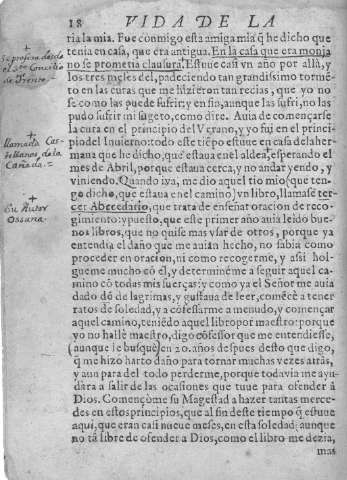 18 VIDA DE LA
ria la mia. Fue conmigo esta amiga mia q̃ he dicho que
tenia en casa, que era antigua. En la casa que era monja
no se prometia clausura. Estuue casi vn año por allà, y
los tres meses del, padeciendo tan grandissimo tormẽ-
to en las curas que me hizieron tan recias, que yo no
se como las pude sufrir: y en fin, aunque las sufri, no las
pudo sufrir mi sugeto, como dire. Auia de començarse
la cura en el principio del Verano, y yo fui en el princi-
pio del Inuierno: todo este tiẽpo estuue en casa de la her-
mana que he dicho, que estaua en el aldea, esperando el
mes de Abril, porque estaua cerca, y no andar yendo, y
viniendo. Quando iva, me dio aquel tio mio (que ten-
go dicho, que estaua en el camino) vn libro, llamase ter-
cer Abecedario, que trata de enseñar oracion de reco-
gimiento: y puesto, que este primer año auia leido bue-
nos libros, que no quise mas vsar de otros, porque ya
entendia el daño que me auian hecho, no sabia como
proceder en oracion, ni como recogerme, y assi hol-
gueme mucho cõ el, y determinéme a seguir aquel cami-
no cõ todas mis fuerças: y como ya el Señor me auia
dado dõ de lagrimas, y gustaua de leer, comẽcè a tener
ratos de soledad, y a cõfessarme a menudo, y començar
aquel camino, teniẽdo aquel libro por maestro: porque
yo no hallè maestro, digo cõfessor que me entendiesse,
(aunque le busquè) en 20. años despues desto que digo,
q̃ me hizo harto daño para tornar muchas vezes atràs,
y aun para del todo perderme, porque todavia me ayu-
dàra a salir de las ocasiones que tuue para ofender à
Dios. Començòme su Magestad a hazer tantas merce-
des en estos principios, que al fin deste tiempo q̃ estuue
aqui, que eran casi nueue meses, en esta soledad: aunque
no tã libre de ofender a Dios, como el libro me dezia,
mas
Se profesa desde
el Sto Concilio
de Trento.
llamada Cas-
tellanos, de la
Cañada.
Su Autor
Ossuna.